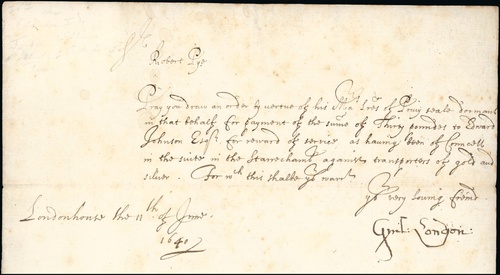 Sr
Robert Pye
Pray you draw an order by vertue of his Mats Lres of Privy seale dormant
in that behalf for payment of the summe of Thirty poundes to Edward
Johnson Esqr. for reward of service as having been of Councell
in the suite in the Starrechamber against transporters of gold and
silver. For wch this shalbe yor warrt.
yor very loving freind
Londonhouse the 11th of June
Guil: London:
1640